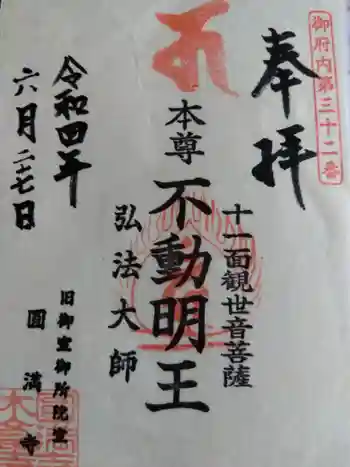 御府内第三十二番
奉拝
十一面観世音菩薩
本尊 不動明王
弘法大師
令和四年
六月二七日
旧御室御所院室
圓満寺